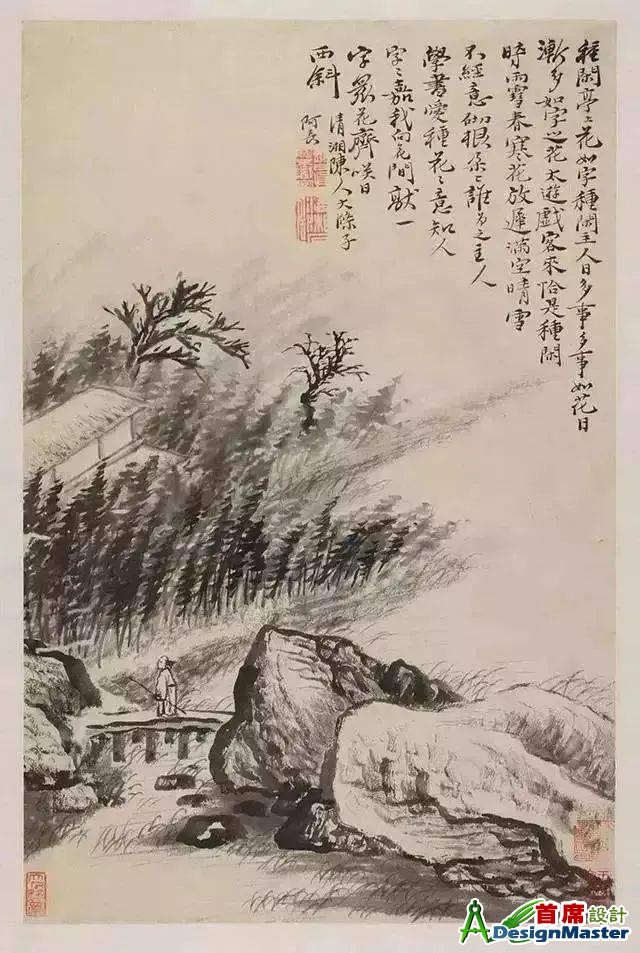 種閑亭上花如字種閑主人日多事多事如花日
漸多如字之花太遊戲客來恰是種閑
時雨雪春寒花放遲滿空晴雪
不經意砌根朵朵誰為之主人
學書愛種花之意知人
字字嘉我向花間獻一
字眾花齊咲日
西斜
清湘陳人大滌子
阿長
首席設計
ADesignMaster